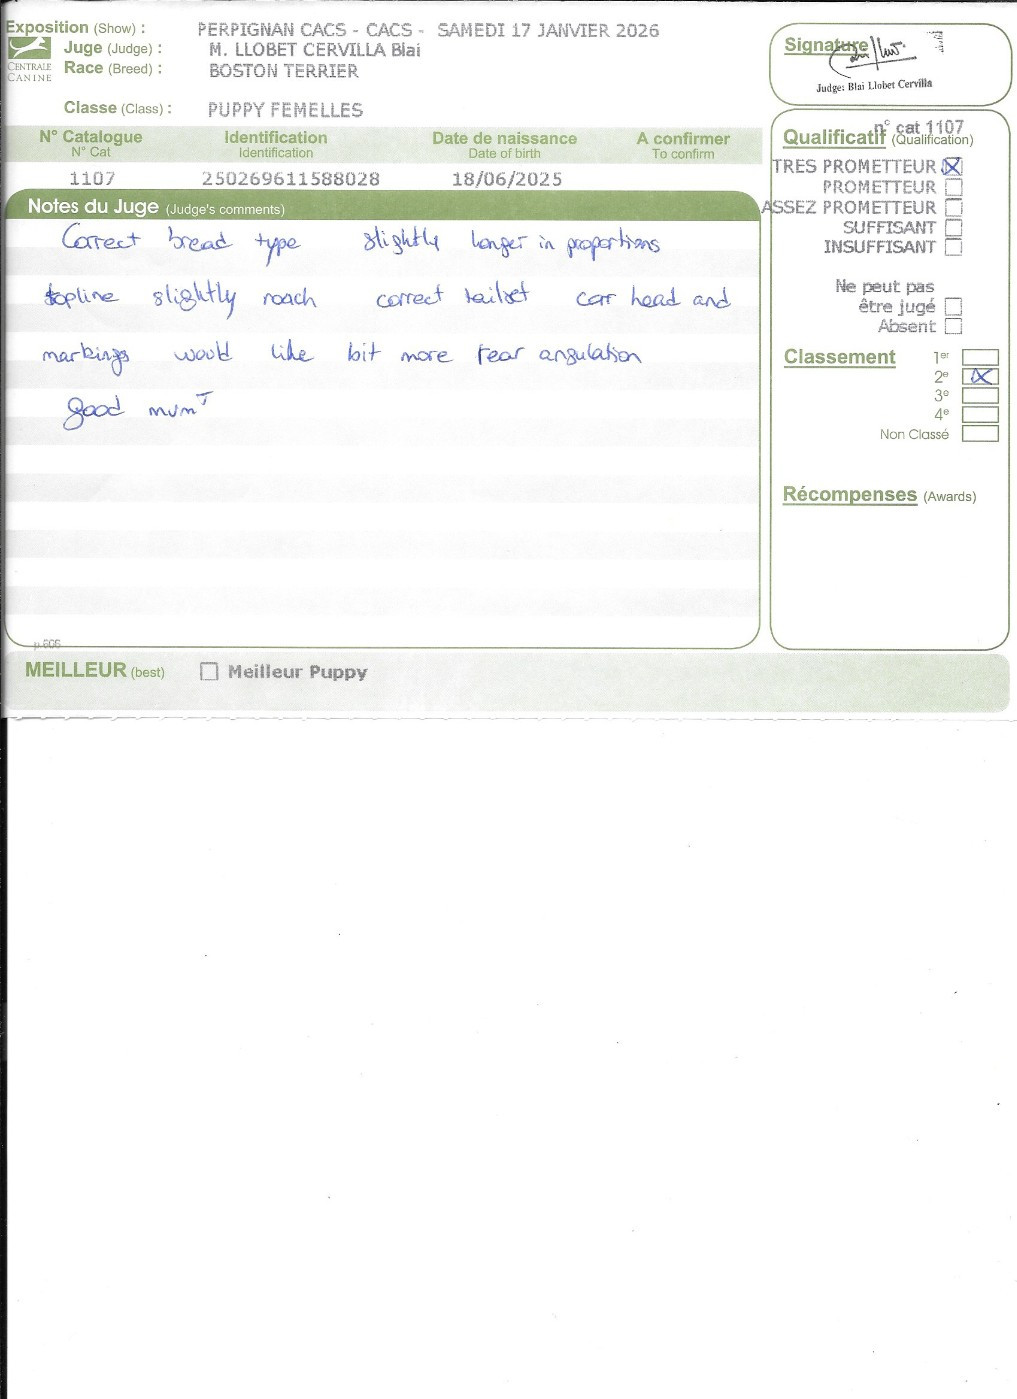 Exposition (Show) : PERPIGNAN CACS - CACS - SAMEDI 17 JANVIER 2026
Juge (Judge) : M. LLOBET CERVILLA Blai
CENTRALE CANINE
Race (Breed) : BOSTON TERRIER
Classe (Class) : PUPPY FEMELLES
Signature
Judge: Blai Llobet Cervilla
N° Catalogue Identification Date de naissance A confirmer
N° Cat Identification Date of birth To confirm
1107 250269611588028 18/06/2025
Notes du Juge (Judge's comments)
Correct bread type slightly longer in proportions
topline slightly roach correct tailset corr head and
markings would like bit more rear angulation
good mvmT
p.606
MEILLEUR (best) Meilleur Puppy
n° cat 1107
Qualificatif (Qualification)
TRES PROMETTEUR
PROMETTEUR
ASSEZ PROMETTEUR
SUFFISANT
INSUFFISANT
Ne peut pas
être jugé
Absent
Classement 1er
2e
3e
4e
Non Classé
Récompenses (Awards)